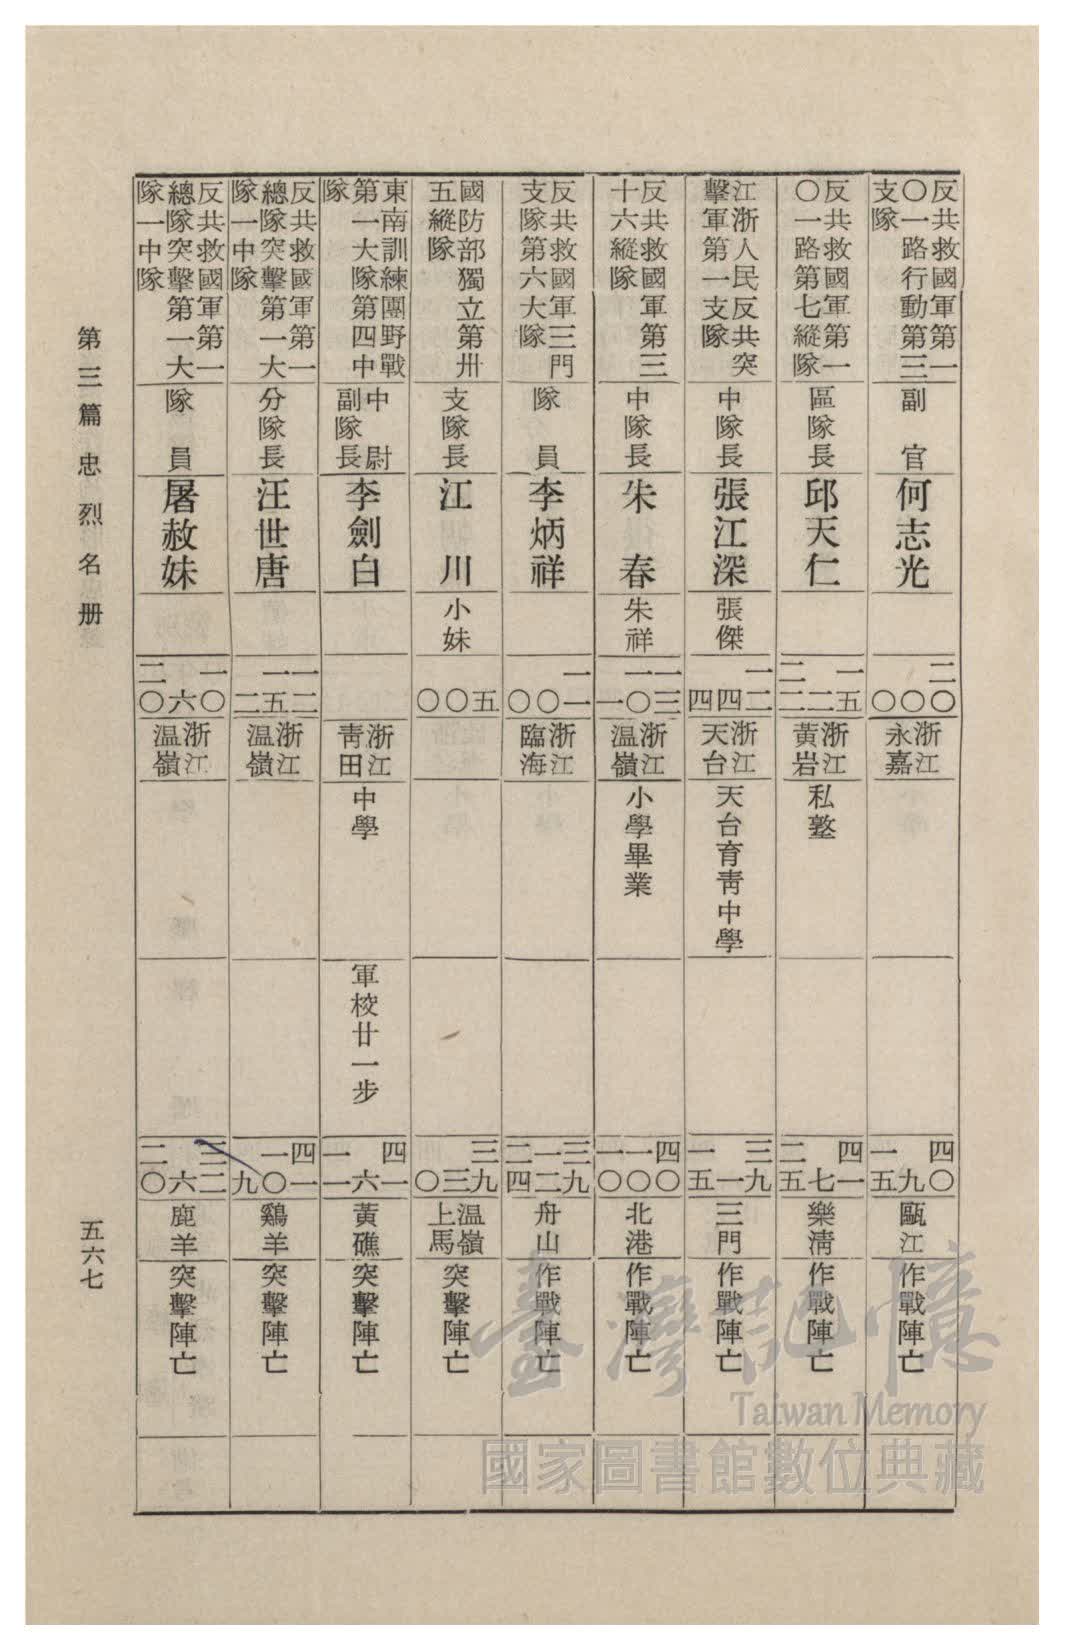 反共救國軍第一
〇一路行動第三
支隊
副官
何志光
二〇
〇
〇
浙江
永嘉
四〇
九
一五
甌江
作戰陣亡
反共救國軍第一
〇一路第七縱隊
區隊長
邱天仁
一五
二
二二
浙江
黃岩
私塾
四一
七
二五
樂清
作戰陣亡
江浙人民反共突
擊軍第一支隊
中隊長
張江深
張傑
一二
四
四
浙江
天台
天台育青中學
三九
一
一五
三門
作戰陣亡
反共救國軍第三
十六縱隊
中隊長
朱春
朱祥
一三
一〇
一一
浙江
温嶺
小學畢業
四〇
一〇
一〇
北港
作戰陣亡
反共救國軍三門
支隊第六大隊
隊員
李炳祥
一一
〇
〇
浙江
臨海
三九
一二
二四
舟山
作戰陣亡
國防部獨立第卅
五縱隊
支隊長
江川
小妹
五
〇
〇
三九
三
〇
温嶺
上馬
突擊陣亡
東南訓練團野戰
第一大隊第四中
隊
中尉
副隊長
李劍白
浙江
青田
中學
軍校廿一步
四一
六
一一
黃礁
突擊陣亡
反共救國軍第一
總隊突擊第一大
隊一中隊
分隊長
汪世唐
一二
五
一二
浙江
温嶺
四一
一〇
九
鷄羊
突擊陣亡
反共救國軍第一
總隊突擊第一大
隊一中隊
隊員
屠赦妹
一〇
六
二〇
浙江
温嶺
三二
六
二〇
鹿羊
突擊陣亡
第三篇 忠烈名册
五六七
臺灣記憶
Taiwan Memory
國家圖書館數位典藏